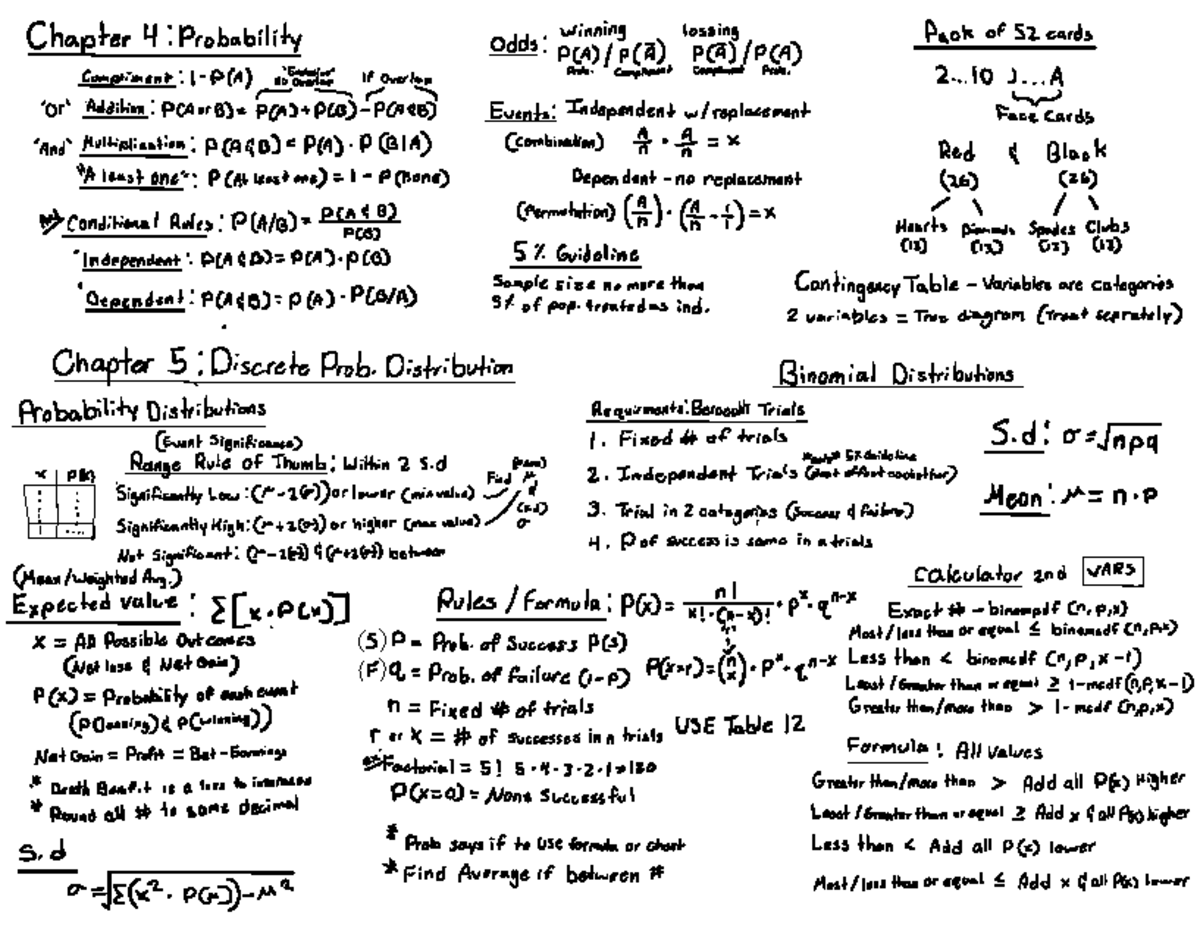 Chapter 4: Probability
Compliment: 1-P(A)
"Exclusive" No Overlap
If Overlap
"Or" Addition: P(A or B) = P(A) + P(B) - P(A & B)
"And" Multiplication: P(A & B) = P(A) · P(B|A)
"At least one": P(At least one) = 1 - P(None)
Conditional Rules: P(A/B) = P(A & B) / P(B)
"Independent": P(A & B) = P(A) · P(B)
"Dependent": P(A & B) = P(A) · P(B/A)
Odds: winning P(A) / P(Ā) lossing P(Ā) / P(A)
Prob. Compliment Compliment Prob.
Events: Independent w/replacement
(Combination) A/n · A/n = x
Dependent - no replacement
(Permutation) (A/n) · (A/n - 1/1) = x
5% Guideline
Sample size no more than
5% of pop. treated as ind.
Pack of 52 cards
2...10 J...A
Face Cards
Red & Black
(26) (26)
Hearts Diamonds Spades Clubs
(13) (13) (13) (13)
Contingency Table - Variables are categories
2 variables = Tree diagram (Treat seprately)
Chapter 5: Discrete Prob. Distribution
Probability Distributions
(Event Significance)
Range Rule of Thumb: Within 2 S.d
x P(x)
Significantly Low: (μ-2(σ)) or lower (min value)
Significantly High: (μ+2(σ)) or higher (max value)
Find (mean) μ & (s.d) σ
Not Significant: (μ-2(σ)) & (μ+2(σ)) between
(Mean/Weighted Avg.)
Expected value: Σ[x·P(x)]
x = All Possible Outcomes
(Net loss & Net Gain)
P(x) = Probability of each event
(P(loosing) & P(winning))
Net Gain = Profit = Bet - Earnings
* Death Benefit is a loss to insurance
* Round all # to same decimal
S.d
σ = √Σ(x²·P(x)) - μ²
Binomial Distributions
Requirments: Bernoulli Trials
1. Fixed # of trials
2. Independent Trials (dont effect eachother)
5% Guideline
3. Trial in 2 categories (Success & Failure)
4. P of success is same in n trials
S.d: σ = √npq
Mean: μ = n·p
Rules/Formula: P(x) = n! / x!·(n-x)! · p^x · q^n-x
(S) P = Prob. of Success P(s)
(F) q = Prob. of failure (1-p)
P(x=r) = (n/x) · p^x · q^n-x
n = Fixed # of trials
r or x = # of successes in n trials
USE Table 12
Factorial = 5! 5·4·3·2·1 = 120
P(x=0) = None Successful
* Prob says if to use formula or chart
* Find Average if between #
Calculator 2nd VARS
Exact # - binompdf (n,p,x)
Most/less than or equal ≤ binomcdf (n,p,x)
Less than < binomcdf (n,p,x-1)
Least/Greater than or equal ≥ 1-mcdf(n,p,x-1)
Greater than/more than > 1-mcdf (n,p,x)
Formula: All values
Greater than/more than > Add all P(x) Higher
Least/Greater than or equal ≥ Add x & all P(x) higher
Less than < Add all P(x) lower
Most/less than or equal ≤ Add x & all P(x) lower